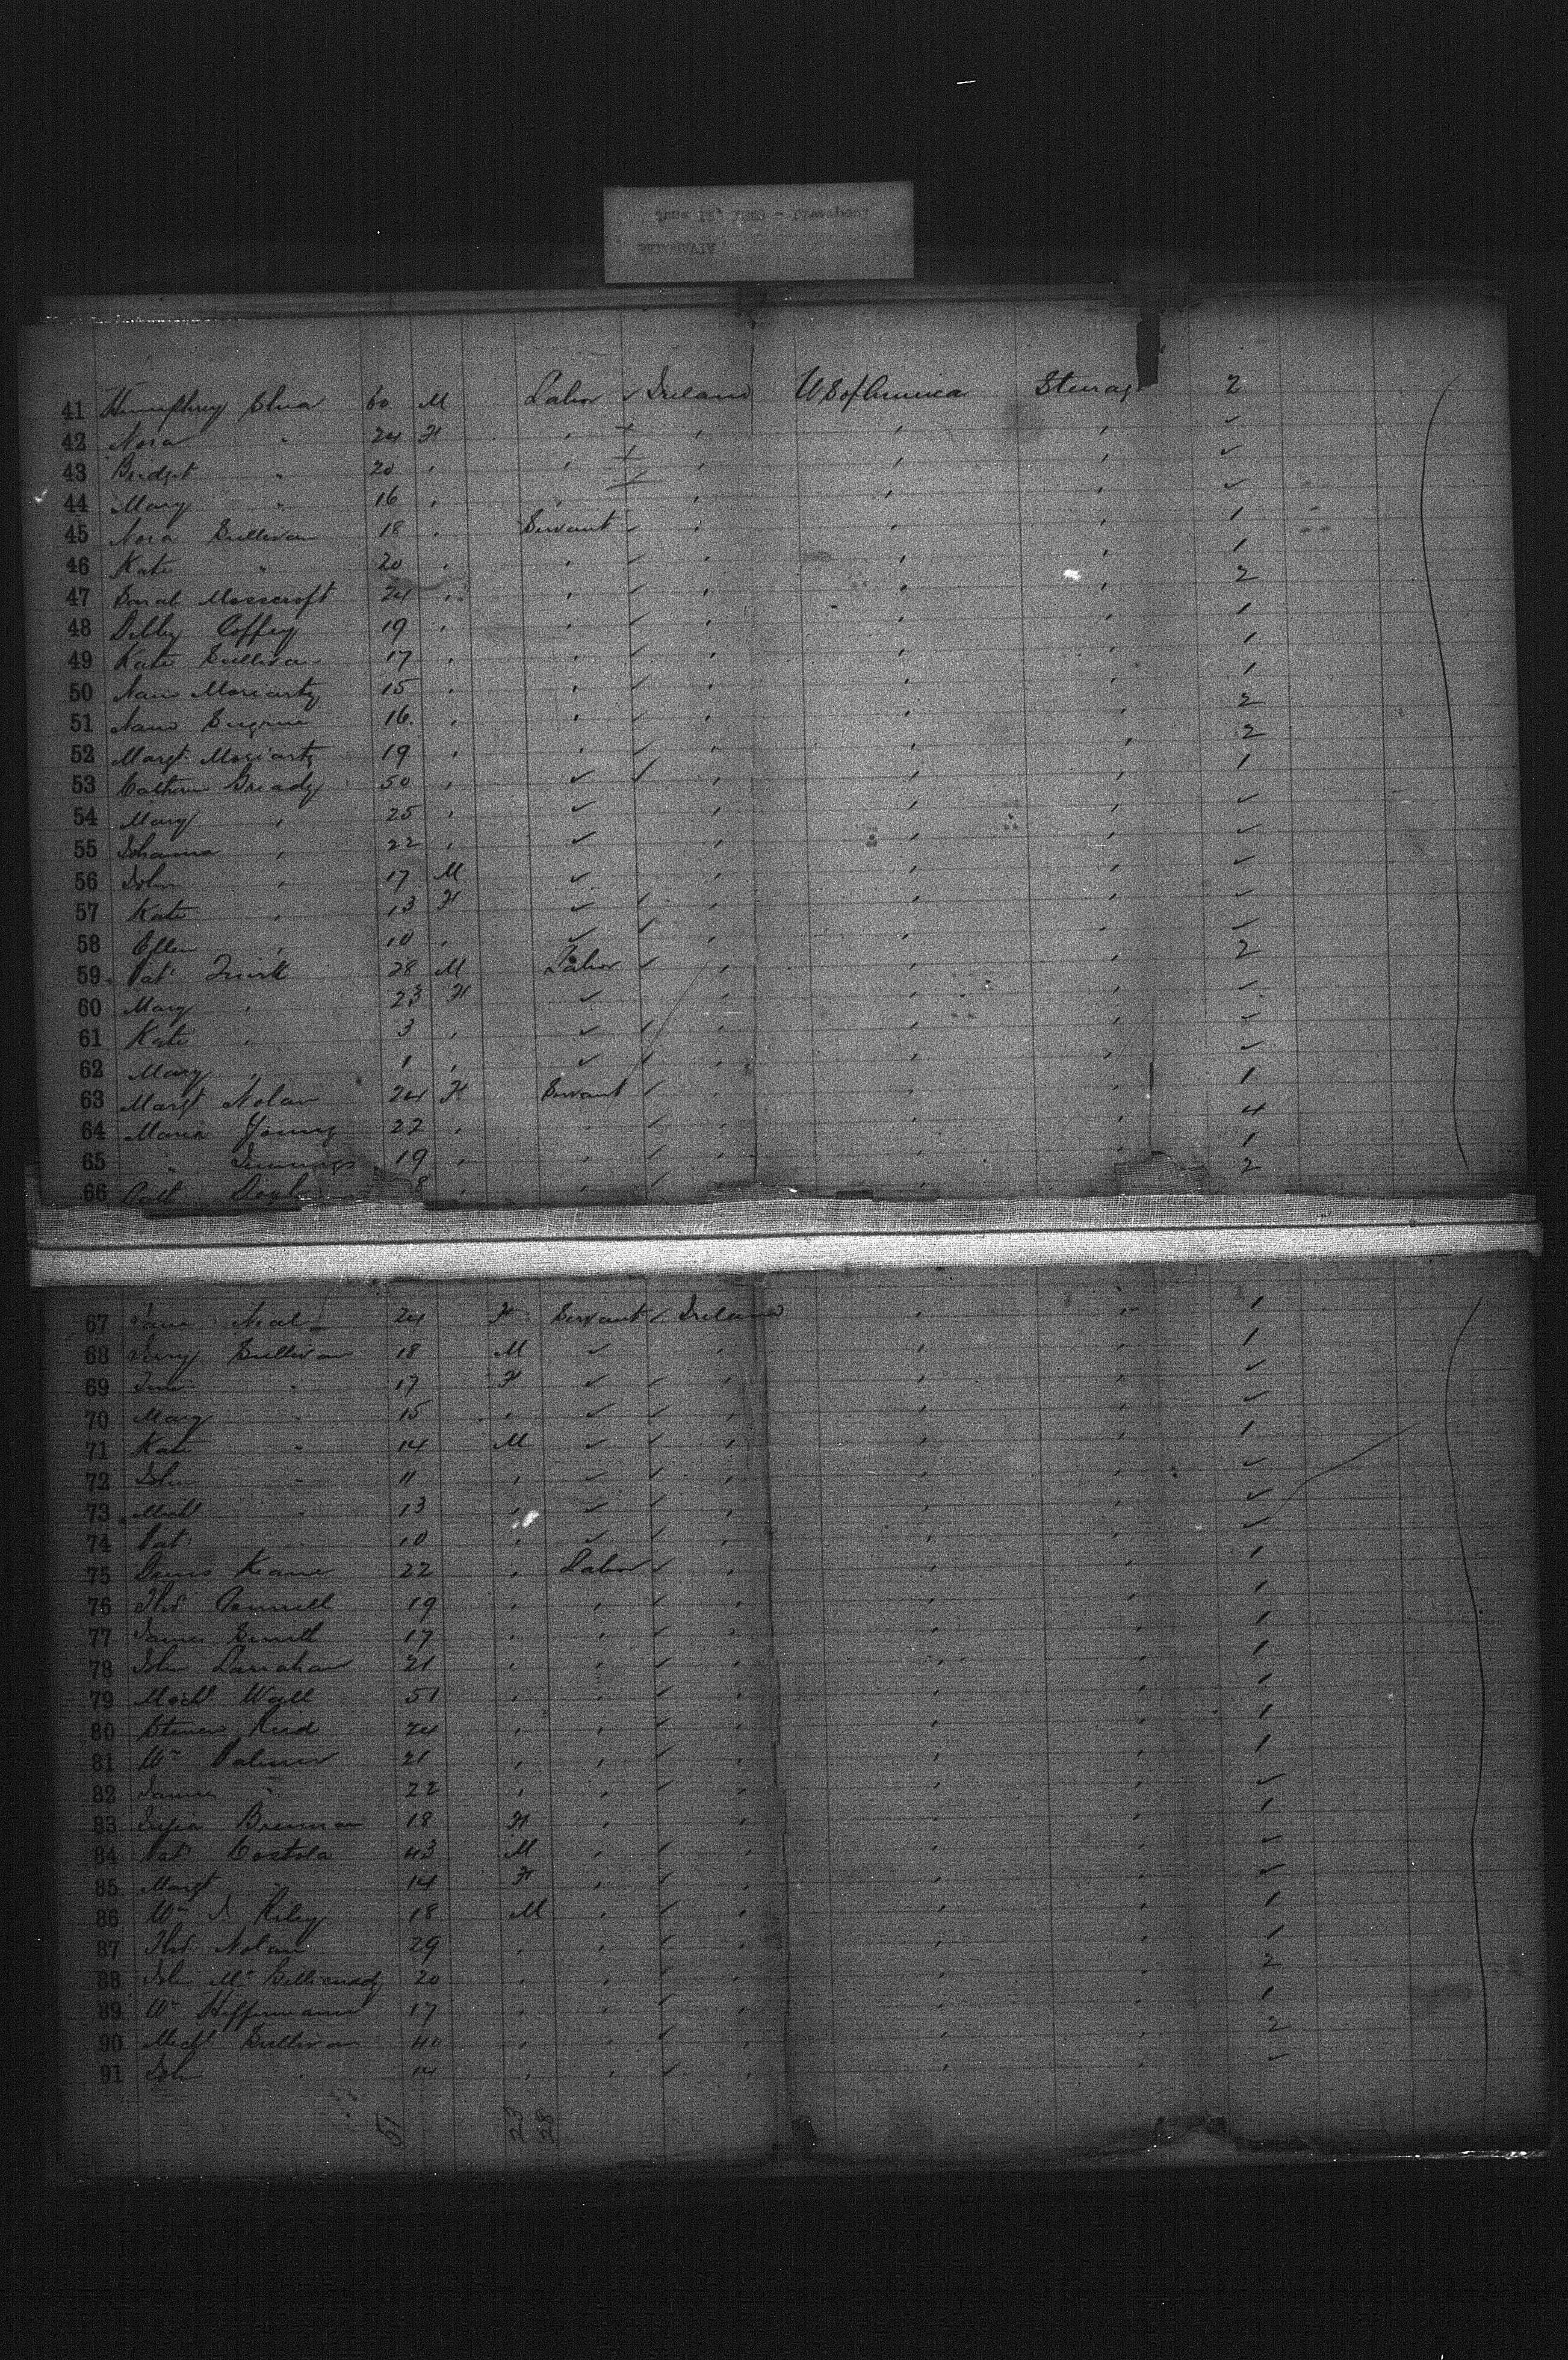 41 Humphrey Shea 60 M Labor ✓ Ireland U S of America Steerag 2
42 Nora " 24 F
43 Bridget " 20
44 Mary " 16
45 Nora Sullivan 18 Servant 1
46 Kate " 20 1
47 Sarah Mosscroft 24 2
48 Debby Coffey 19 1
49 Kate Sullivan 17 1
50 Nano Moriarty 15 1
51 Nano 16 2
52 Margt Moriarty 19 2
53 Cathern Gready 50 1
54 Mary " 25
55 Johanna " 22
56 John " 17 M
57 Kate " 13 F
58 Ellen " 10
59 Pat 28 M Labor 2
60 Mary " 23 F
61 Kate " 3
62 Mary " 1
63 Margt Nolan 24 F Servant 1
64 Maria Young 22 4
65 " Jennings 19 1
66 Doyle 8 2
67 Jane Neal 24 F Servant Ireland 1
68 Jerry Sullivan 18 M 1
69 " 17 F
70 Mary " 15
71 Kate " 14 M 1
72 John " 11
73 Michl " 13
74 Pat 10
75 Denis Keane 22 Labor 1
76 Thos Connell 19 1
77 James Smith 17 1
78 John Lanahan 21 1
79 Michl Wall 51 1
80 Reid 24 1
81 Wm Palmer 21 1
82 James " 22
83 Brennan 18 F 1
84 Pat Costola 43 M
85 Margt " 14 F
86 Wm J. Riley 18 M 1
87 Thos Nolan 29 1
88 John Mc Gillicuddy 20 2
89 Wm Heffernann 17 1
90 Michl Sullivan 40 2
91 John " 14
51 23 28